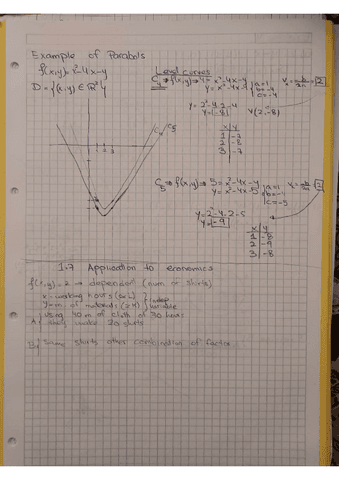 Example of Parabols
f(x,y)=x²-4x-y
D={(x,y)∈ℝ²}
Level curves
C4 → f(x,y) → 4=x²-4x-y
y=x²-4x-4 { a=1 b=-4 c=-4
x=-b/2a=2
y=2²-4·2-4
y=-8
V(2,-8)
x | y
1 | -7
2 | -8
3 | -7
C5 → f(x,y) → 5=x²-4x-y
y=x²-4x-5 { a=1 c=-5
x=-b/2a=2
y=2²-4·2-5
y=-9
x y
2 -9
3 -8
C5
1.7 Application to economics
f(x,y)=z → dependent (num of shirts)
x - working hours (L)
y= m of
indep
variable
using 40 m of cloth 30 hours
A) they make 20 shirts
B) Same shirts other combination of factor